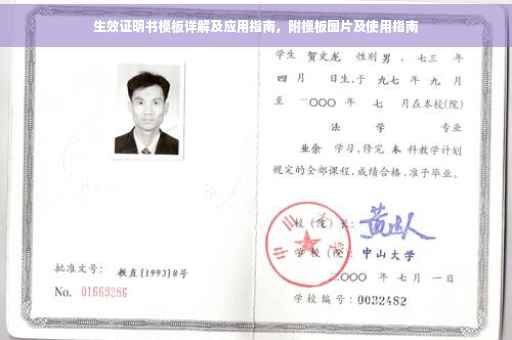 生效证明书模板详解及应用指南，附模板图片及使用指南
学生 贺文龙 性别 男 、七三 年
四 月 日生,于 九七 年 九 月
至 二〇〇〇 年 七 月在本校(院)
法 学 专业
业余 学习,修完 本 科教学计划
规定的全部课程,成绩合格,准予毕业。
校（院）长:
学校（院）: 中山大学
二〇〇〇 年 七 月 一 日
学校编号: 0032482
批准文号: 教直[1993]8号
No. 01669286